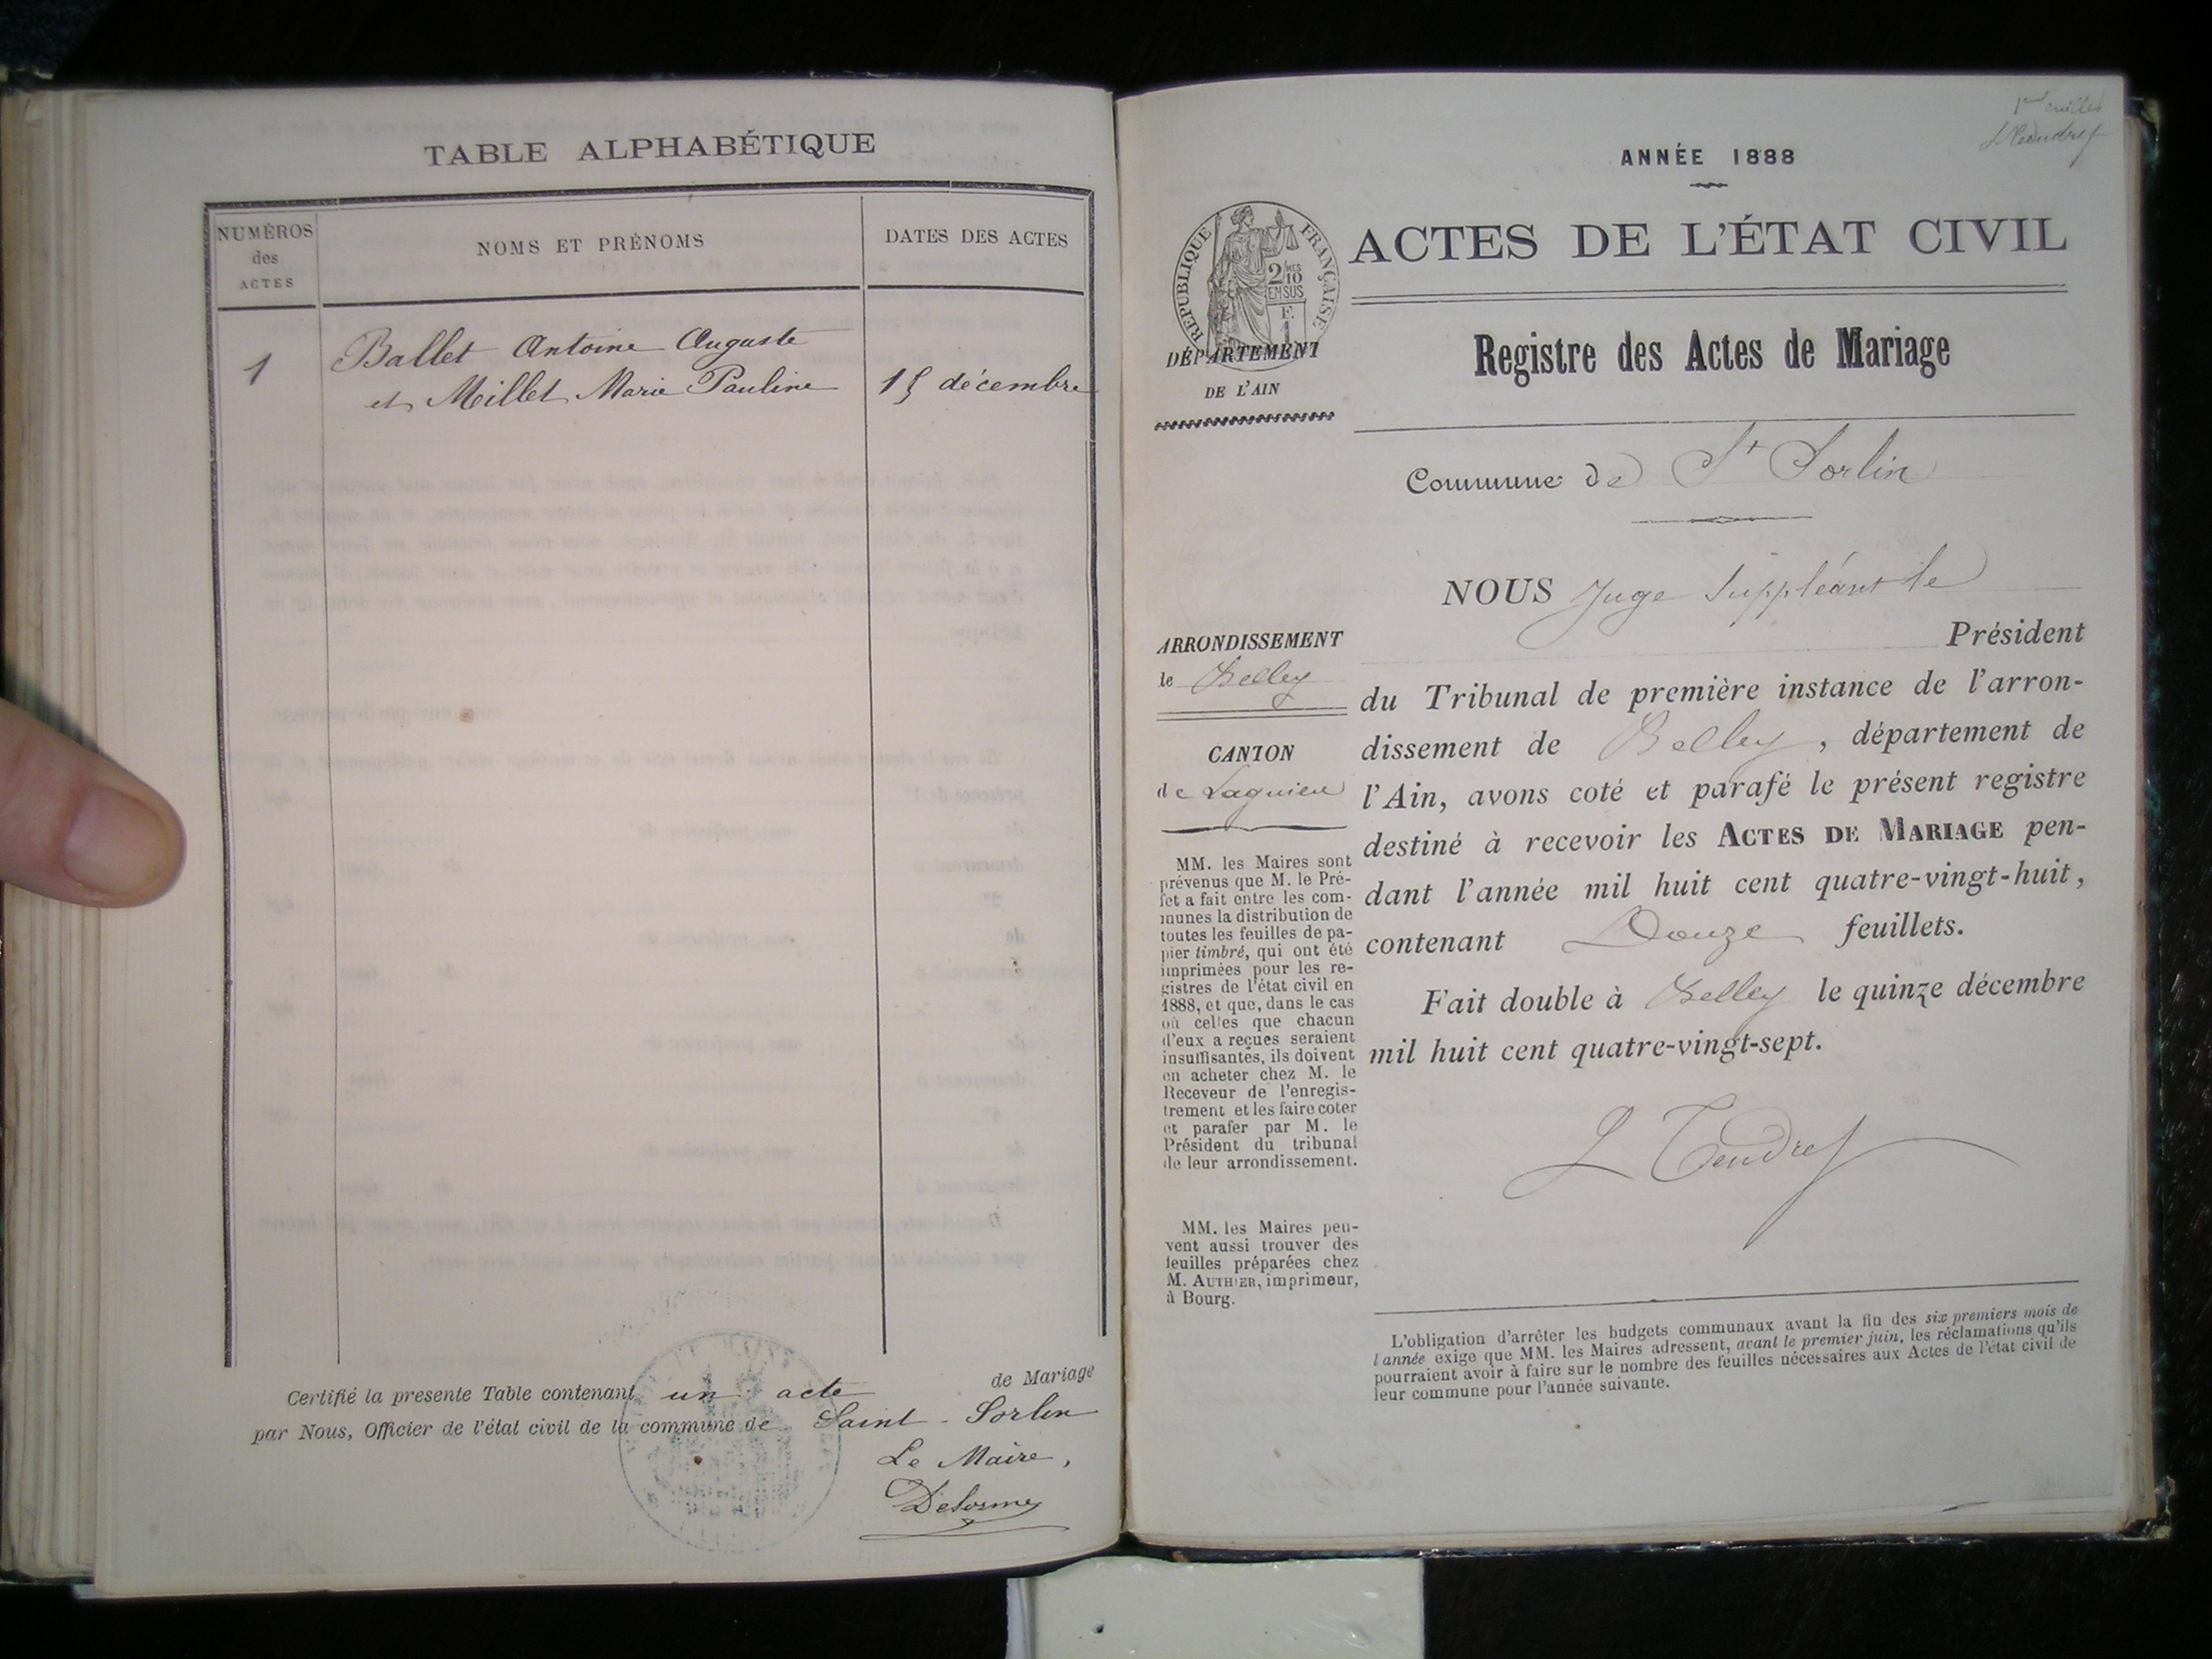 TABLE ALPHABÉTIQUE
NUMÉROS
des
ACTES
NOMS ET PRÉNOMS
DATES DES ACTES
1
Ballet Antoine Auguste
et Millet Marie Pauline
15 décembre
Certifié la presente Table contenant un acte de Mariage
par Nous, Officier de l'état civil de la commune de Saint-Sorlin
Le Maire,
Delorme
ANNÉE 1888
RÉPUBLIQUE FRANÇAISE
2/10
EN SUS
F.
1
ACTES DE L'ÉTAT CIVIL
DÉPARTEMENT
DE L'AIN
Registre des Actes de Mariage
Commune de St Sorlin
NOUS Juge Suppléant le
Président
du Tribunal de première instance de l'arron-
dissement de Belley, département de
l'Ain, avons coté et parafé le présent registre
destiné à recevoir les ACTES DE MARIAGE pen-
dant l'année mil huit cent quatre-vingt-huit,
contenant Douze feuillets.
Fait double à Belley le quinze décembre
mil huit cent quatre-vingt-sept.
L Tendret
ARRONDISSEMENT
de Belley
CANTON
de Lagnieu
MM. les Maires sont
prévenus que M. le Pré-
fet a fait entre les com-
munes la distribution de
toutes les feuilles de pa-
pier timbré, qui ont été
imprimées pour les re-
gistres de l'état civil en
1888, et que, dans le cas
où celles que chacun
d'eux a reçues seraient
insuffisantes, ils doivent
en acheter chez M. le
Receveur de l'enregis-
trement et les faire coter
et parafer par M. le
Président du tribunal
de leur arrondissement.
MM. les Maires peu-
vent aussi trouver des
feuilles préparées chez
M. AUTHIER, imprimeur,
à Bourg.
L'obligation d'arrêter les budgets communaux avant la fin des six premiers mois de
l'année exige que MM. les Maires adressent, avant le premier juin, les réclamations qu'ils
pourraient avoir à faire sur le nombre des feuilles nécessaires aux Actes de l'état civil de
leur commune pour l'année suivante.